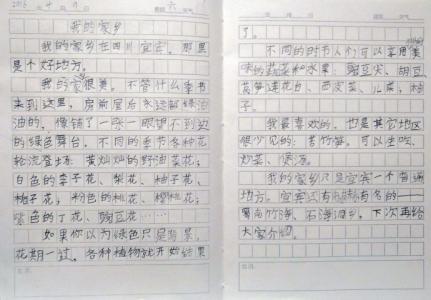 2016 年 4 月 日 六
我的家乡
我的家乡在四川宜宾。那里
是个好地方。
我的家乡很美。不管什么季节
来到这里，房前屋后永远都绿油
油的，像铺了一张一眼望不到边
的绿色舞台，不同的季节各种花
轮流登场：黄灿灿的野油菜花；
白色的李子花、梨花、柚子花、
柚子花；粉色的桃花、樱桃花；
紫色的丁花、豌豆花……
如果你以为绿色只是背景，
花期一过，各种植物就开始结果
了。
不同的时节人们可以享用美
味的蔬菜和水果，豌豆尖、胡豆、
莴笋莲花白、西皮菜、儿菜；柚
子。
我最喜欢的，也是其它地区
很少见的：苦竹笋。可以生吃、
炒菜、煲汤。
我的家乡只是宜宾一个普通
地方。宜宾还有很有名的——
蜀南竹海、石海洞乡，下次再给
大家介绍。